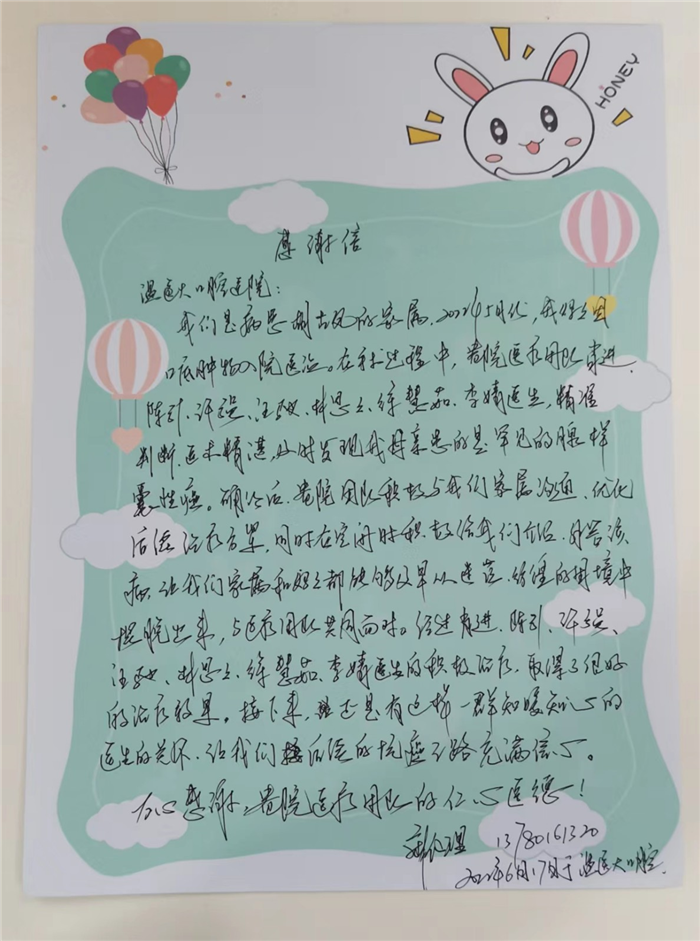 HONEY
感谢信
温医大口腔医院：
我们是病患的家属，2022年5月份，我妈妈因
口底肿物入院医治。在手术过程中，贵院医疗团队
陈引、许强、李婧医生，精准
判断、医术精湛，及时发现我母亲患的是罕见的腺样
囊性癌。确公后，贵院团队积极与我们家属沟通，优化
后续治疗方案，同时在空闲时积极给我们介绍、解答该
病，让我们家属和妈妈都能够及早从迷茫、的困境中
摆脱出来，与医疗团队共同面对。经过、陈引、许强、
李婧医生的积极治疗，取得了很好
的治疗效果。接下来，还是有这样一群知暖知心的
医生的关怀，让我们后续的抗癌之路充满信心。
衷心感谢，贵院医疗团队的仁心医德！
13780161320
2022年6月17日于温医大口腔